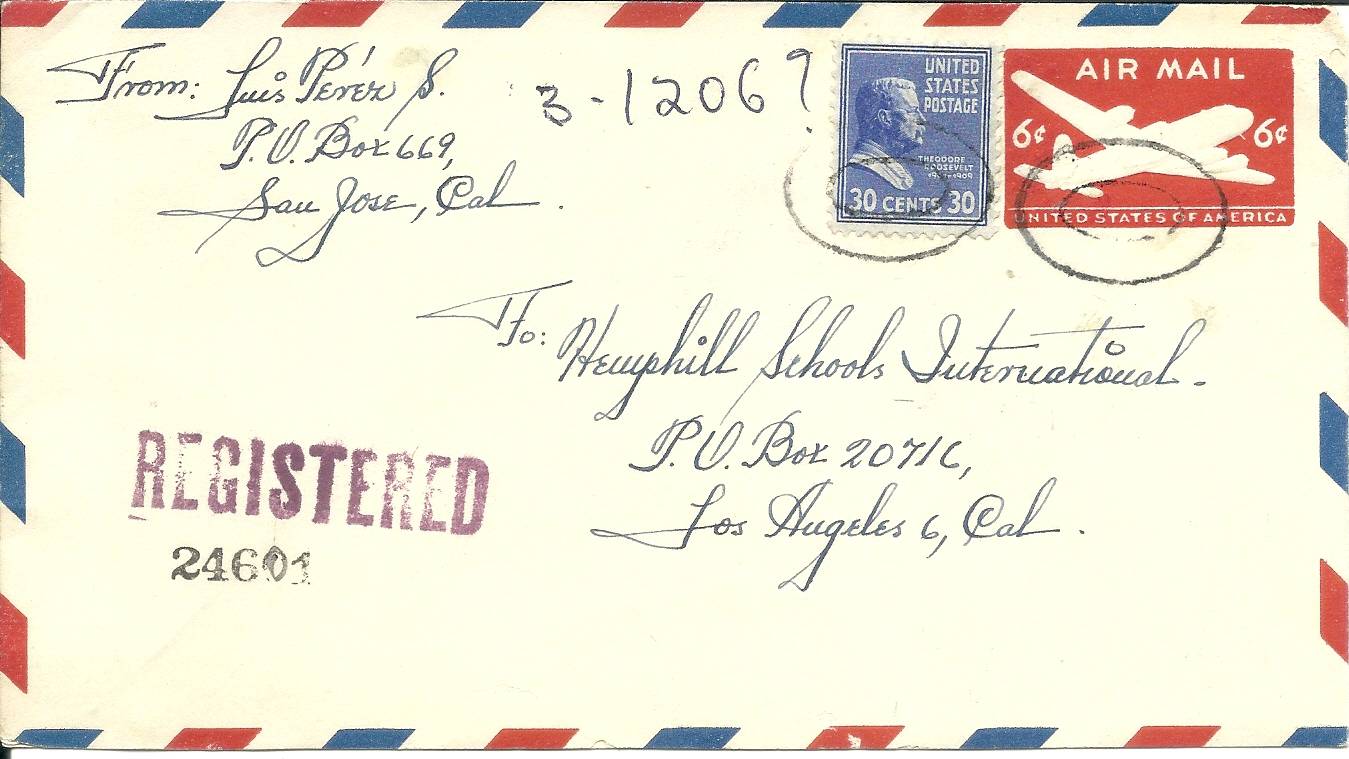 From: Luis Pérez S.
P.O. Box 669,
San Jose, Cal.
3-1206?
UNITED
STATES
POSTAGE
THEODORE
ROOSEVELT
30 CENTS 30
AIR MAIL
6¢ 6¢
UNITED STATES OF AMERICA
To: Hemphill Schools International.
P.O. Box 20716,
Los Angeles 6, Cal.
REGISTERED
24601